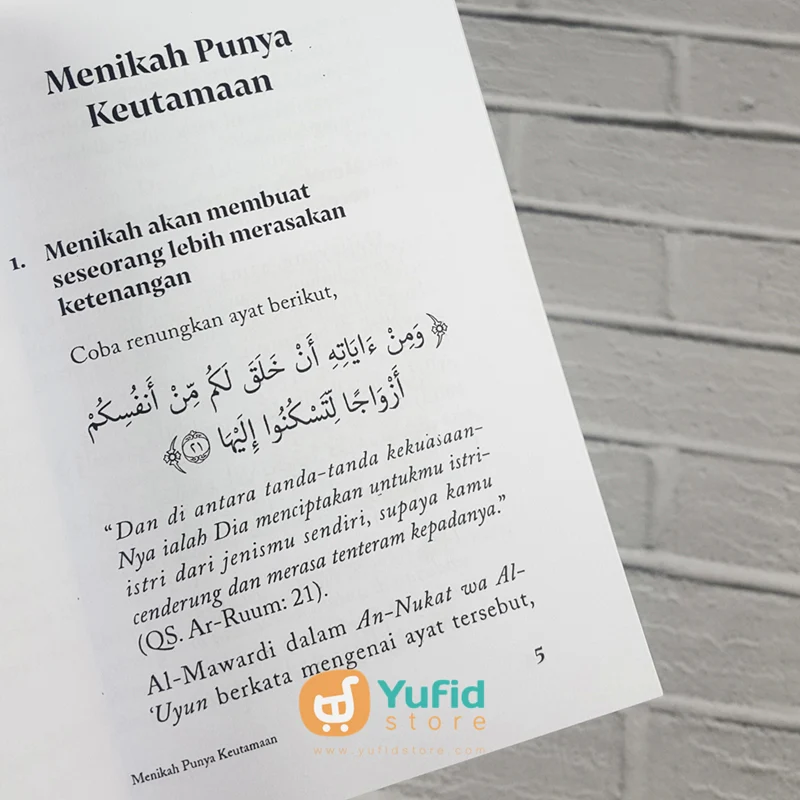 Menikah Punya
Keutamaan
1. Menikah akan membuat
seseorang lebih merasakan
ketenangan
Coba renungkan ayat berikut,
﴿ وَمِنْ ءَايَاتِهِ أَنْ خَلَقَ لَكُم مِّنْ أَنفُسِكُمْ
أَزْوَاجًا لِّتَسْكُنُوا إِلَيْهَا ٢١ ﴾
“Dan di antara tanda-tanda kekuasaan-
Nya ialah Dia menciptakan untukmu istri-
istri dari jenismu sendiri, supaya kamu
cenderung dan merasa tenteram kepadanya.”
(QS. Ar-Ruum: 21).
Al-Mawardi dalam An-Nukat wa Al-
‘Uyun berkata mengenai ayat tersebut,
5
Menikah Punya Keutamaan
Yufid
store
www.yufidstore.com